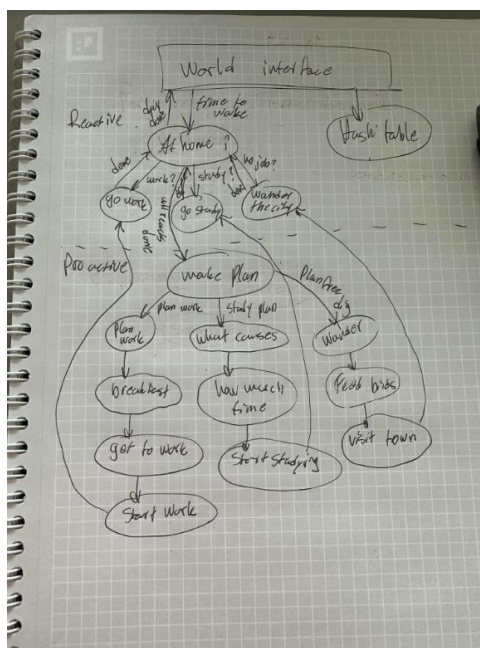 World interface
Reactive
day done
time to wake
At home?
Hash table
done
work?
study?
no job?
done
go work
go study
wander the city
done
Proactive
make plan
plan work
study plan
Plan free day
Plan work
what causes
wander
breakfest
how much time
Feed birds
get to work
Start studying
visit town
Start work